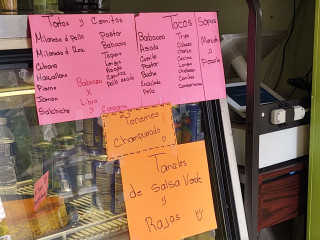 Tortas y Cemitas
Milanesa d Pollo
Milanesa d Res
Cubana
Hawaiiana
Pierna
Jamon
Salchicha
Pastor
Barbacoa
Lengua
Asada
Carnitas
Pollo asado
Barbacoa
X
Libra
y Consome
Tacos
Barbacoa
Asada
Carnitas
Pollo
Pastor
Buche
Enchilada
Pollo
Tripa
Cabeza
Oreja
Cecina
Lengua
Chorizo
Campechano
Sopas
Menudo
y
Pozole
Tenemos
champurrado
Tamales
de salsa Verde
y
Rajas